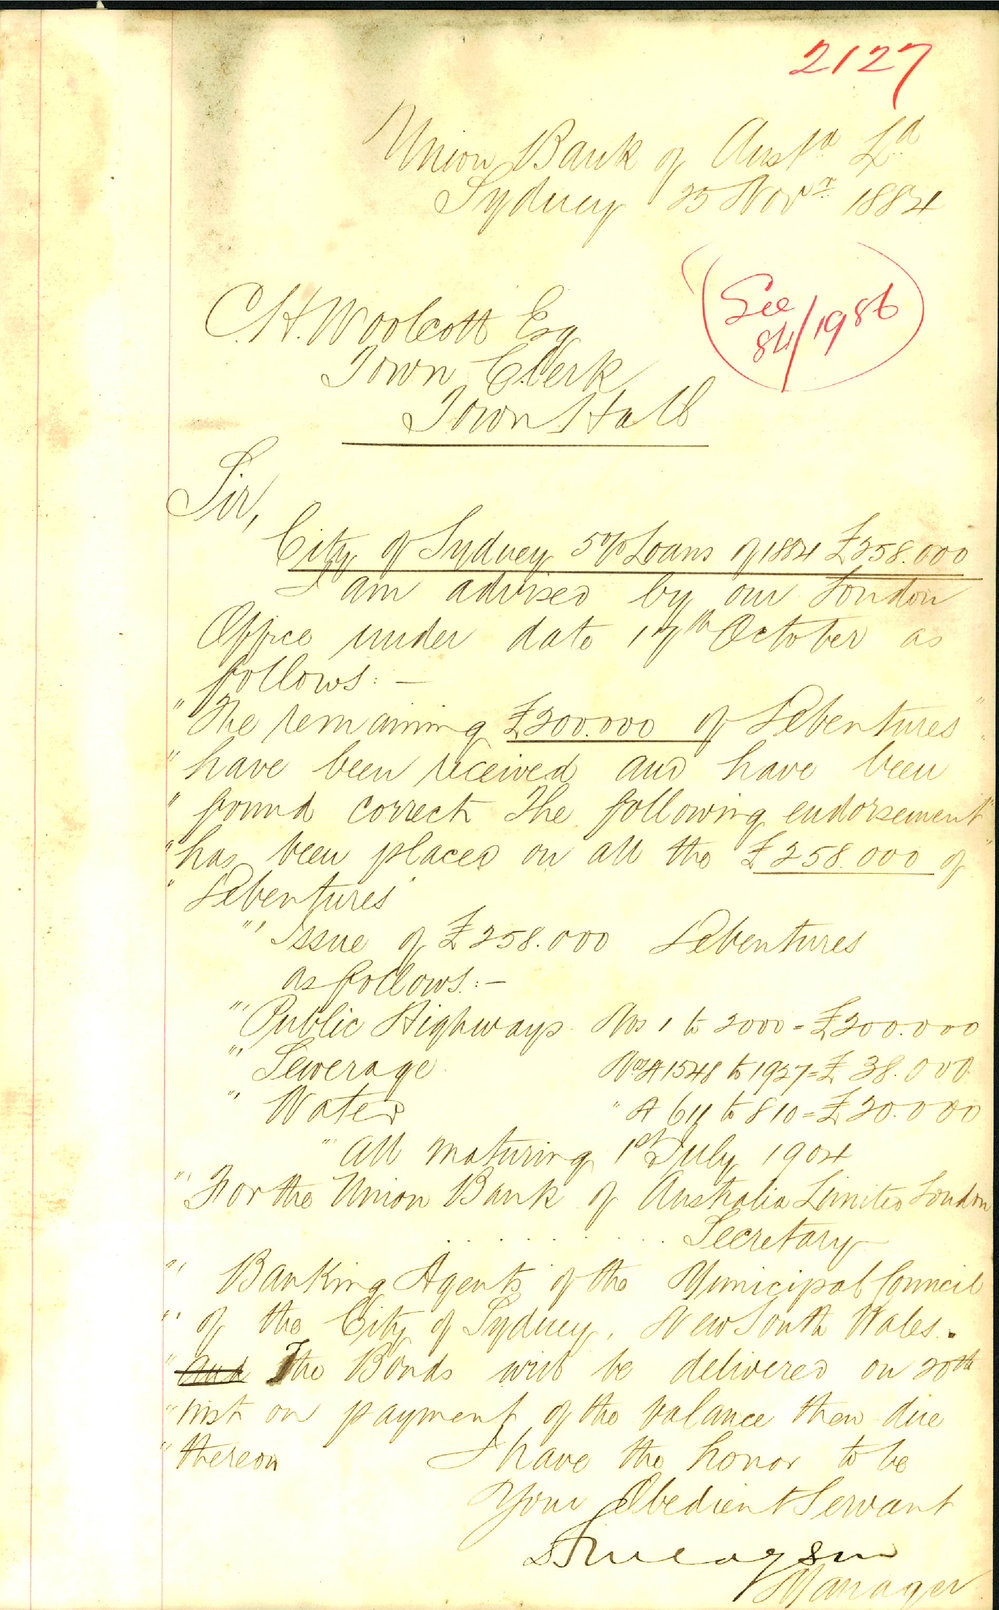 2127
Union Bank of Austa Ld
Sydney 25 Novr 1884
(See
84/1986)
C.H. Woolcott Esq
Town Clerk
Town Hall
Sir,
City of Sydney 5% Loans of 1884 £258.000
I am advised by our London
Office under date 17th October as
follows: —
"The remaining £200.000 of Debentures"
"have been received and have been
"found correct The following endorsement"
"has been placed on all the £258.000 of"
"Debentures
"'Issue of £258.000 Debentures
as follows:—
"'Public Highways Nos 1 to 2000 = £200.000
"'Sewerage Nos A 1548 to 1927 = £38.000
"'Water " A 611 to 810 = £20.000
"'All maturing 1st July 1904
"'For the Union Bank of Australia Limited London
. . . . . . . . Secretary
"'Banking Agents of the Municipal Council
"'of the City of Sydney. New South Wales.
"and The Bonds will be delivered on 20th
"inst on payment of the balance then due
"thereon I have the honor to be
Your Obedient Servant
Manager